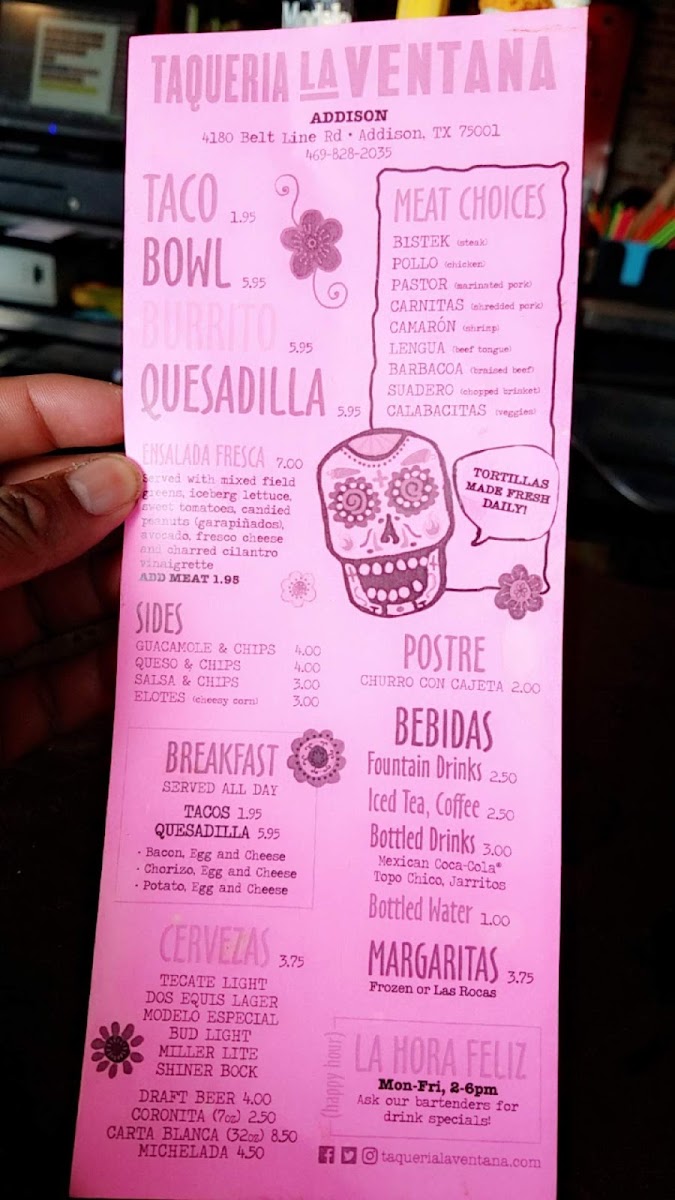 TAQUERIA LA VENTANA
ADDISON
4180 Belt Line Rd • Addison, TX 75001
469-828-2035
TACO 1.95
BOWL 5.95
BURRITO 5.95
QUESADILLA 5.95
MEAT CHOICES
BISTEK (steak)
POLLO (chicken)
PASTOR (marinated pork)
CARNITAS (shredded pork)
CAMARÓN (shrimp)
LENGUA (beef tongue)
BARBACOA (braised beef)
SUADERO (chopped brisket)
CALABACITAS (veggies)
TORTILLAS
MADE FRESH
DAILY!
ENSALADA FRESCA 7.00
Served with mixed field
greens, iceberg lettuce,
sweet tomatoes, candied
peanuts (garapiñados),
avocado, fresco cheese
and charred cilantro
vinaigrette
ADD MEAT 1.95
SIDES
GUACAMOLE & CHIPS 4.00
QUESO & CHIPS 4.00
SALSA & CHIPS 3.00
ELOTES (cheesy corn) 3.00
BREAKFAST
SERVED ALL DAY
TACOS 1.95
QUESADILLA 5.95
· Bacon, Egg and Cheese
· Chorizo, Egg and Cheese
· Potato, Egg and Cheese
CERVEZAS 3.75
TECATE LIGHT
DOS EQUIS LAGER
MODELO ESPECIAL
BUD LIGHT
MILLER LITE
SHINER BOCK
DRAFT BEER 4.00
CORONITA (7oz) 2.50
CARTA BLANCA (32oz) 8.50
MICHELADA 4.50
POSTRE
CHURRO CON CAJETA 2.00
BEBIDAS
Fountain Drinks 2.50
Iced Tea, Coffee 2.50
Bottled Drinks 3.00
Mexican Coca-Cola®
Topo Chico, Jarritos
Bottled Water 1.00
MARGARITAS 3.75
Frozen or Las Rocas
(happy hour)
LA HORA FELIZ
Mon-Fri, 2-6pm
Ask our bartenders for
drink specials!
taquerialaventana.com